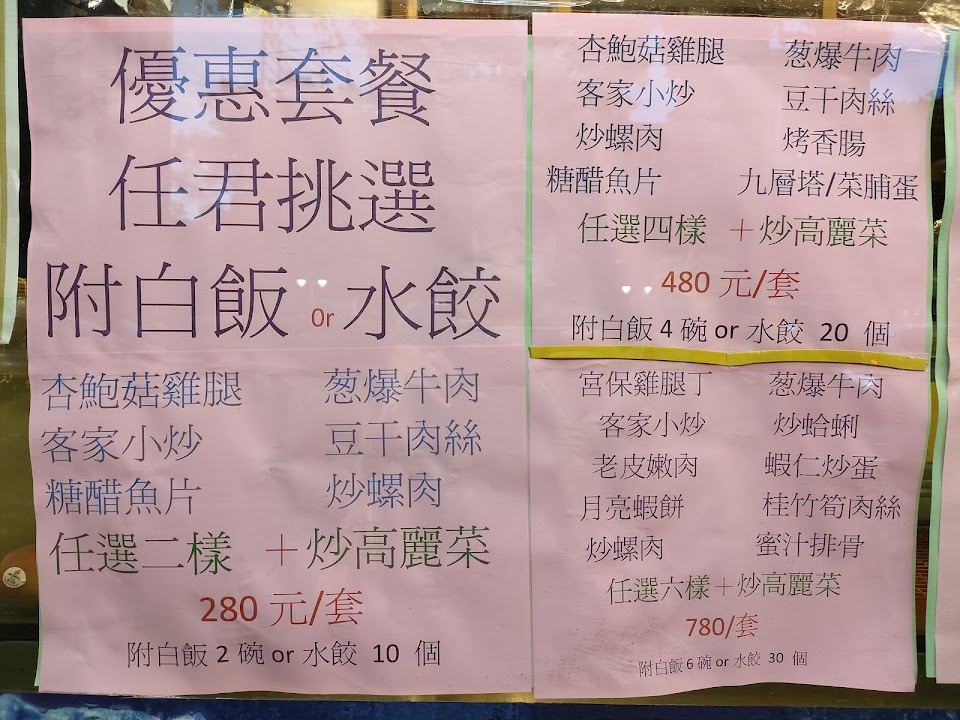 優惠套餐
任君挑選
附白飯 Or 水餃
杏鮑菇雞腿 葱爆牛肉
客家小炒 豆干肉絲
糖醋魚片 炒螺肉
任選二樣 +炒高麗菜
280 元/套
附白飯 2 碗 or 水餃 10 個
杏鮑菇雞腿 葱爆牛肉
客家小炒 豆干肉絲
炒螺肉 烤香腸
糖醋魚片 九層塔/菜脯蛋
任選四樣 +炒高麗菜
480 元/套
附白飯 4 碗 or 水餃 20 個
宮保雞腿丁 葱爆牛肉
客家小炒 炒蛤蜊
老皮嫩肉 蝦仁炒蛋
月亮蝦餅 桂竹筍肉絲
炒螺肉 蜜汁排骨
任選六樣+炒高麗菜
780/套
附白飯 6 碗 or 水餃 30 個